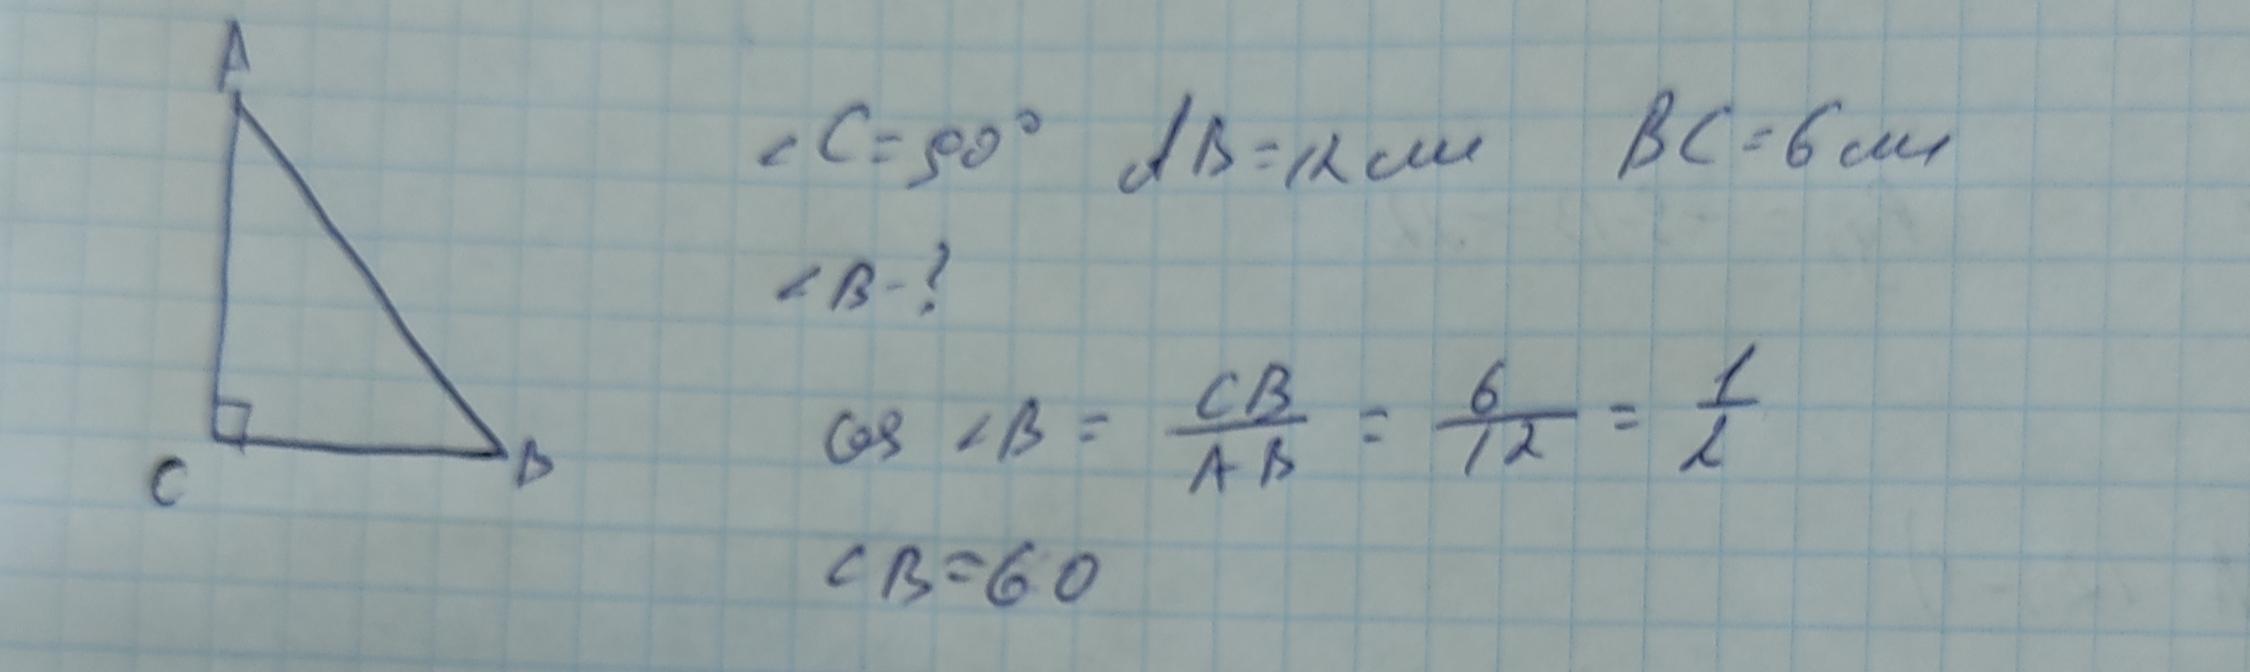 A
∠C=90° AB=12 см BC=6 см
∠B-?
cos ∠B = CB/AB = 6/12 = 1/2
C B
∠B=60